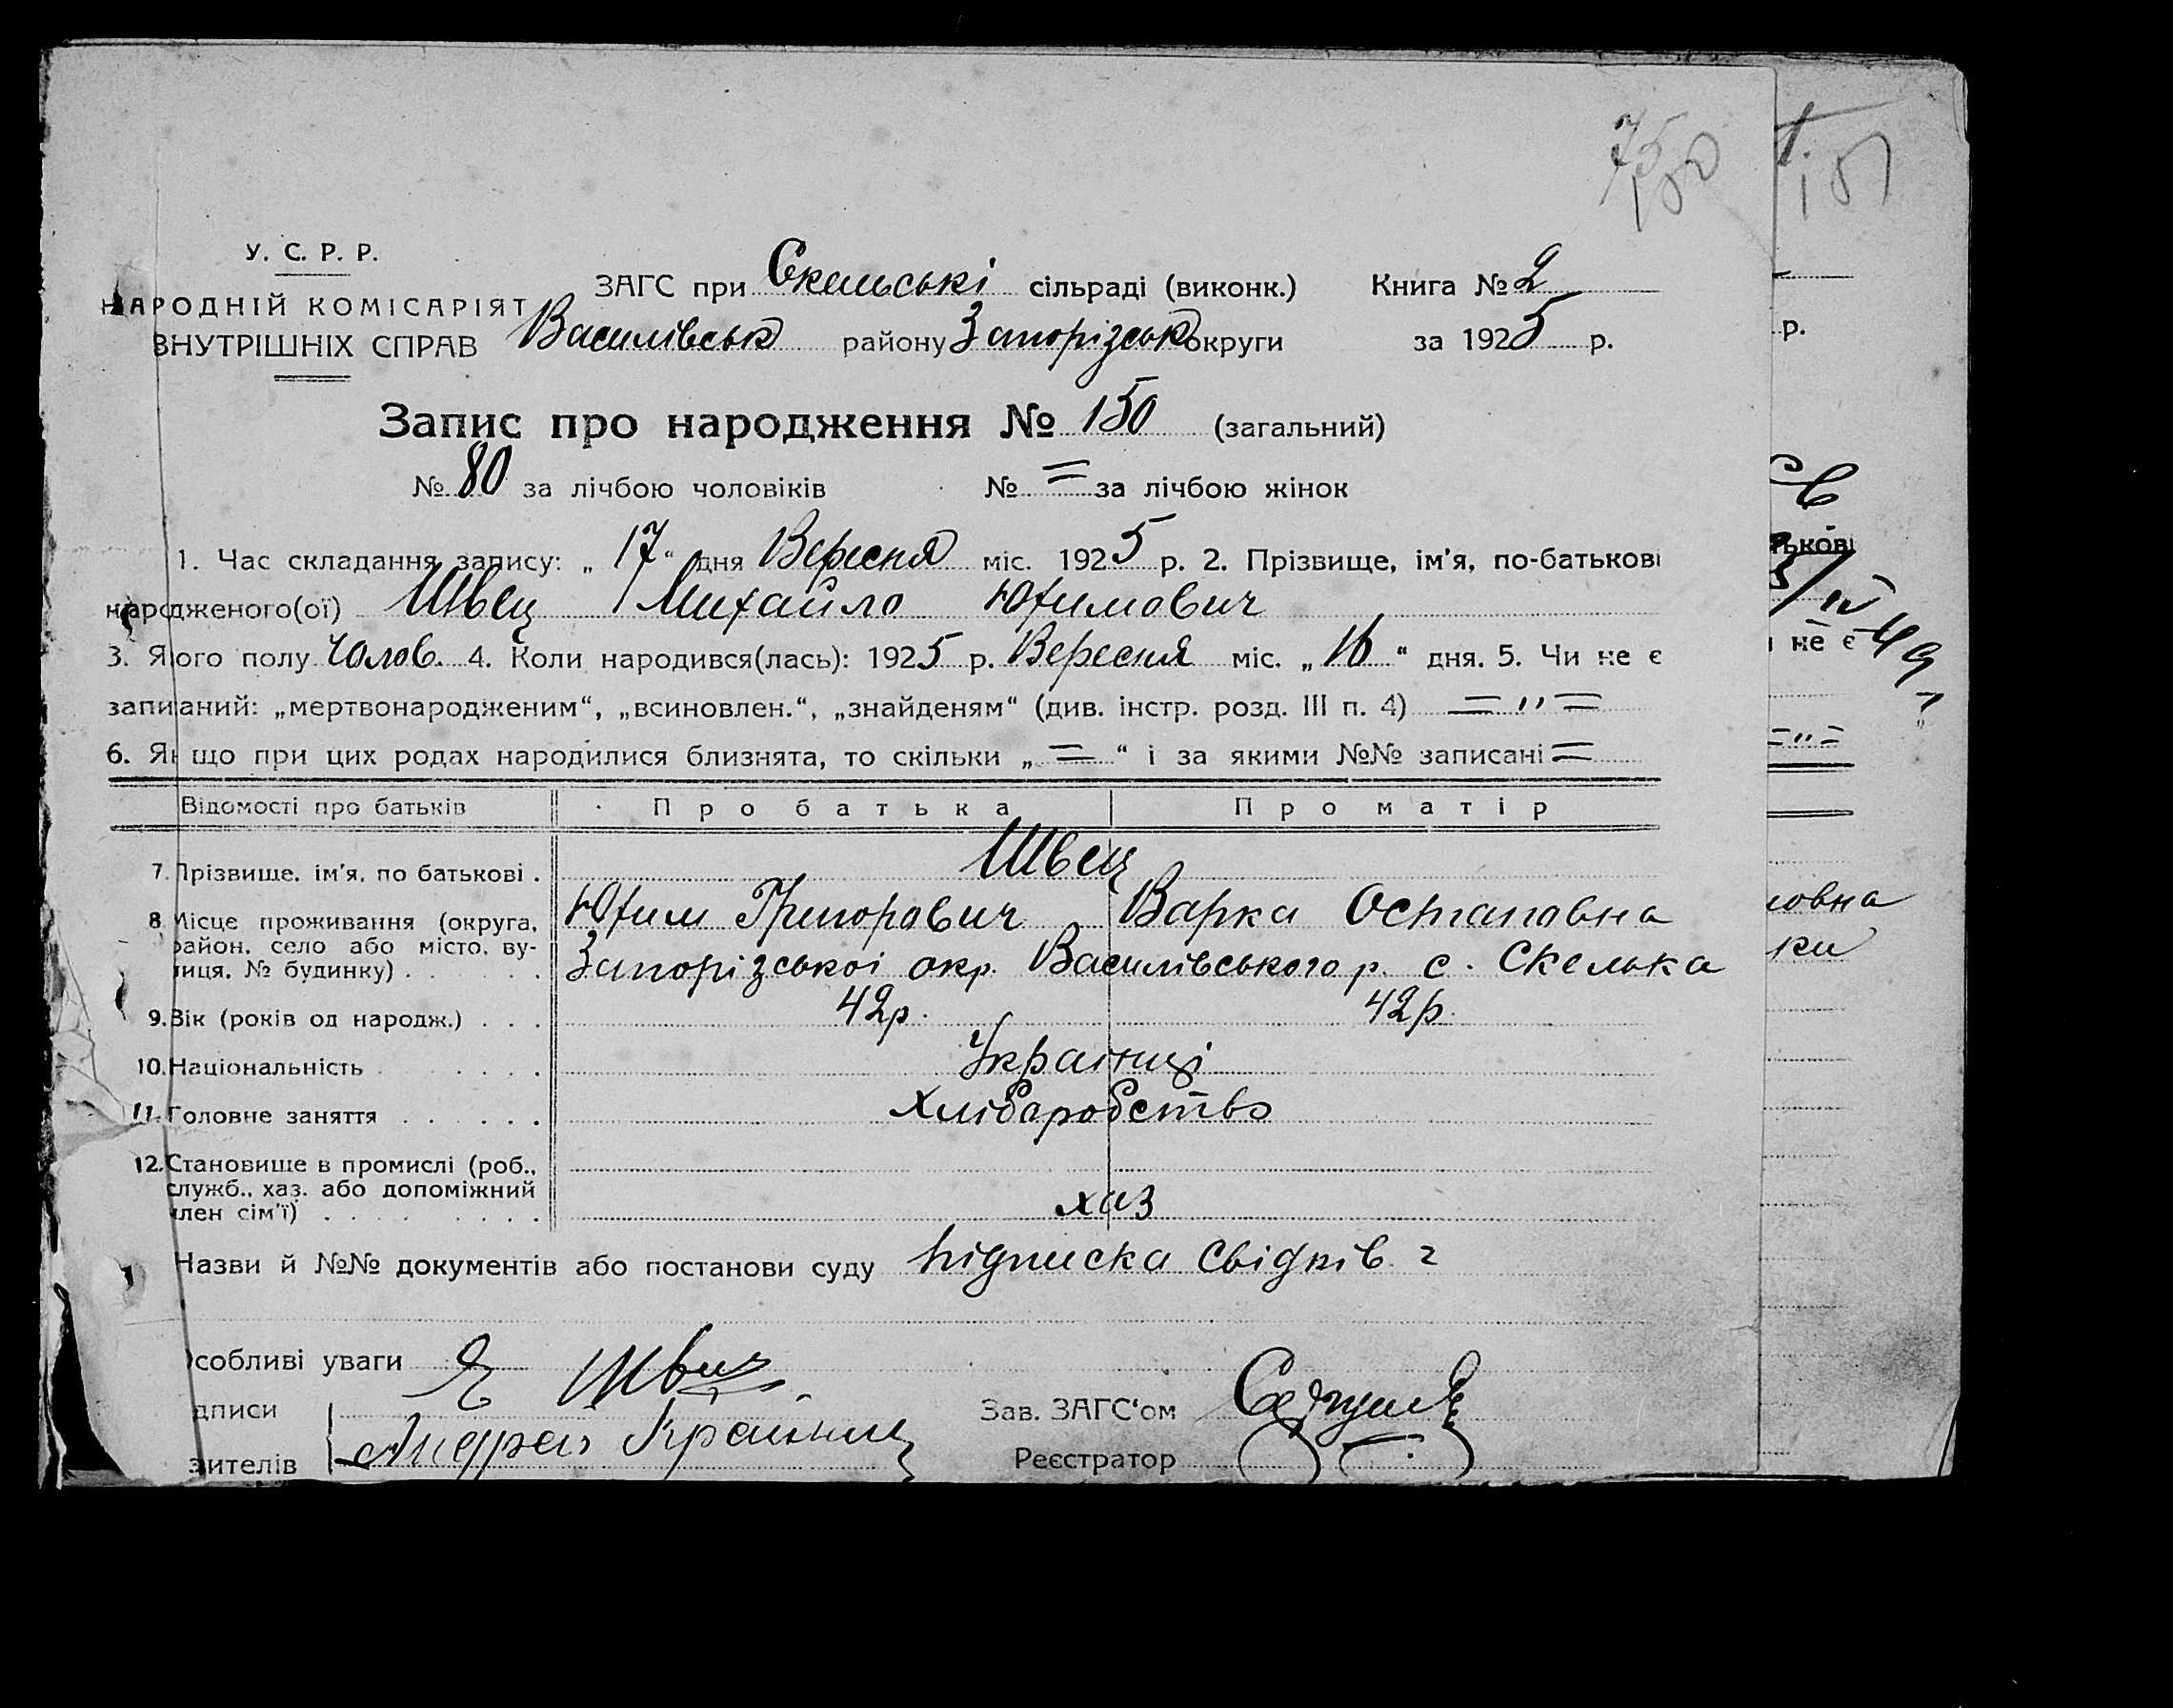 75
150
151
У. С. Р. Р.
НАРОДНІЙ КОМІСАРІЯТ
ВНУТРІШНІХ СПРАВ
ЗАГС при Скельські сільраді (виконк.) Книга № 2
Василівськ району Запорізськ округи за 1925 р.
р.
Запис про народження № 150 (загальний)
№ 80 за лічбою чоловіків № = за лічбою жінок
1. Час складання запису: „ 17 “ дня Вересня міс. 1925 р. 2. Прізвище, ім'я, по-батькові
народженого(ої) Швец Михайло Юхимович
3. Якого полу Чолов. 4. Коли народився(лась): 1925 р. Вересня міс. „ 16 “ дня. 5. Чи не є
записаний: „мертвонародженим“, „всиновлен.“, „знайденям“ (див. інстр. розд. III п. 4) = „ =
6. Якщо при цих родах народилися близнята, то скільки „ = “ і за якими №№ записані =
Відомості про батьків Про батька Про матір
7. Прізвище, ім'я, по батькові . Швец
Юхим Григорович Варка Остаповна
8. Місце проживання (округа,
район, село або місто, ву-
лиця, № будинку) . . . Запорізської окр. Василівського р. с. Скелька
9. Вік (років од народж.) . . . 42р. 42р.
10. Національність . . . . . Українці
11. Головне заняття . . . . . Хліборобство
12. Становище в промислі (роб.,
служб., хаз. або допоміжний
член сім'ї) . . . . . . . хаз
Назви й №№ документів або постанови суду підписка свідків 2
Особливі уваги
дписи Швец
Зав. ЗАГС'ом
зителів Андрей
Реєстратор